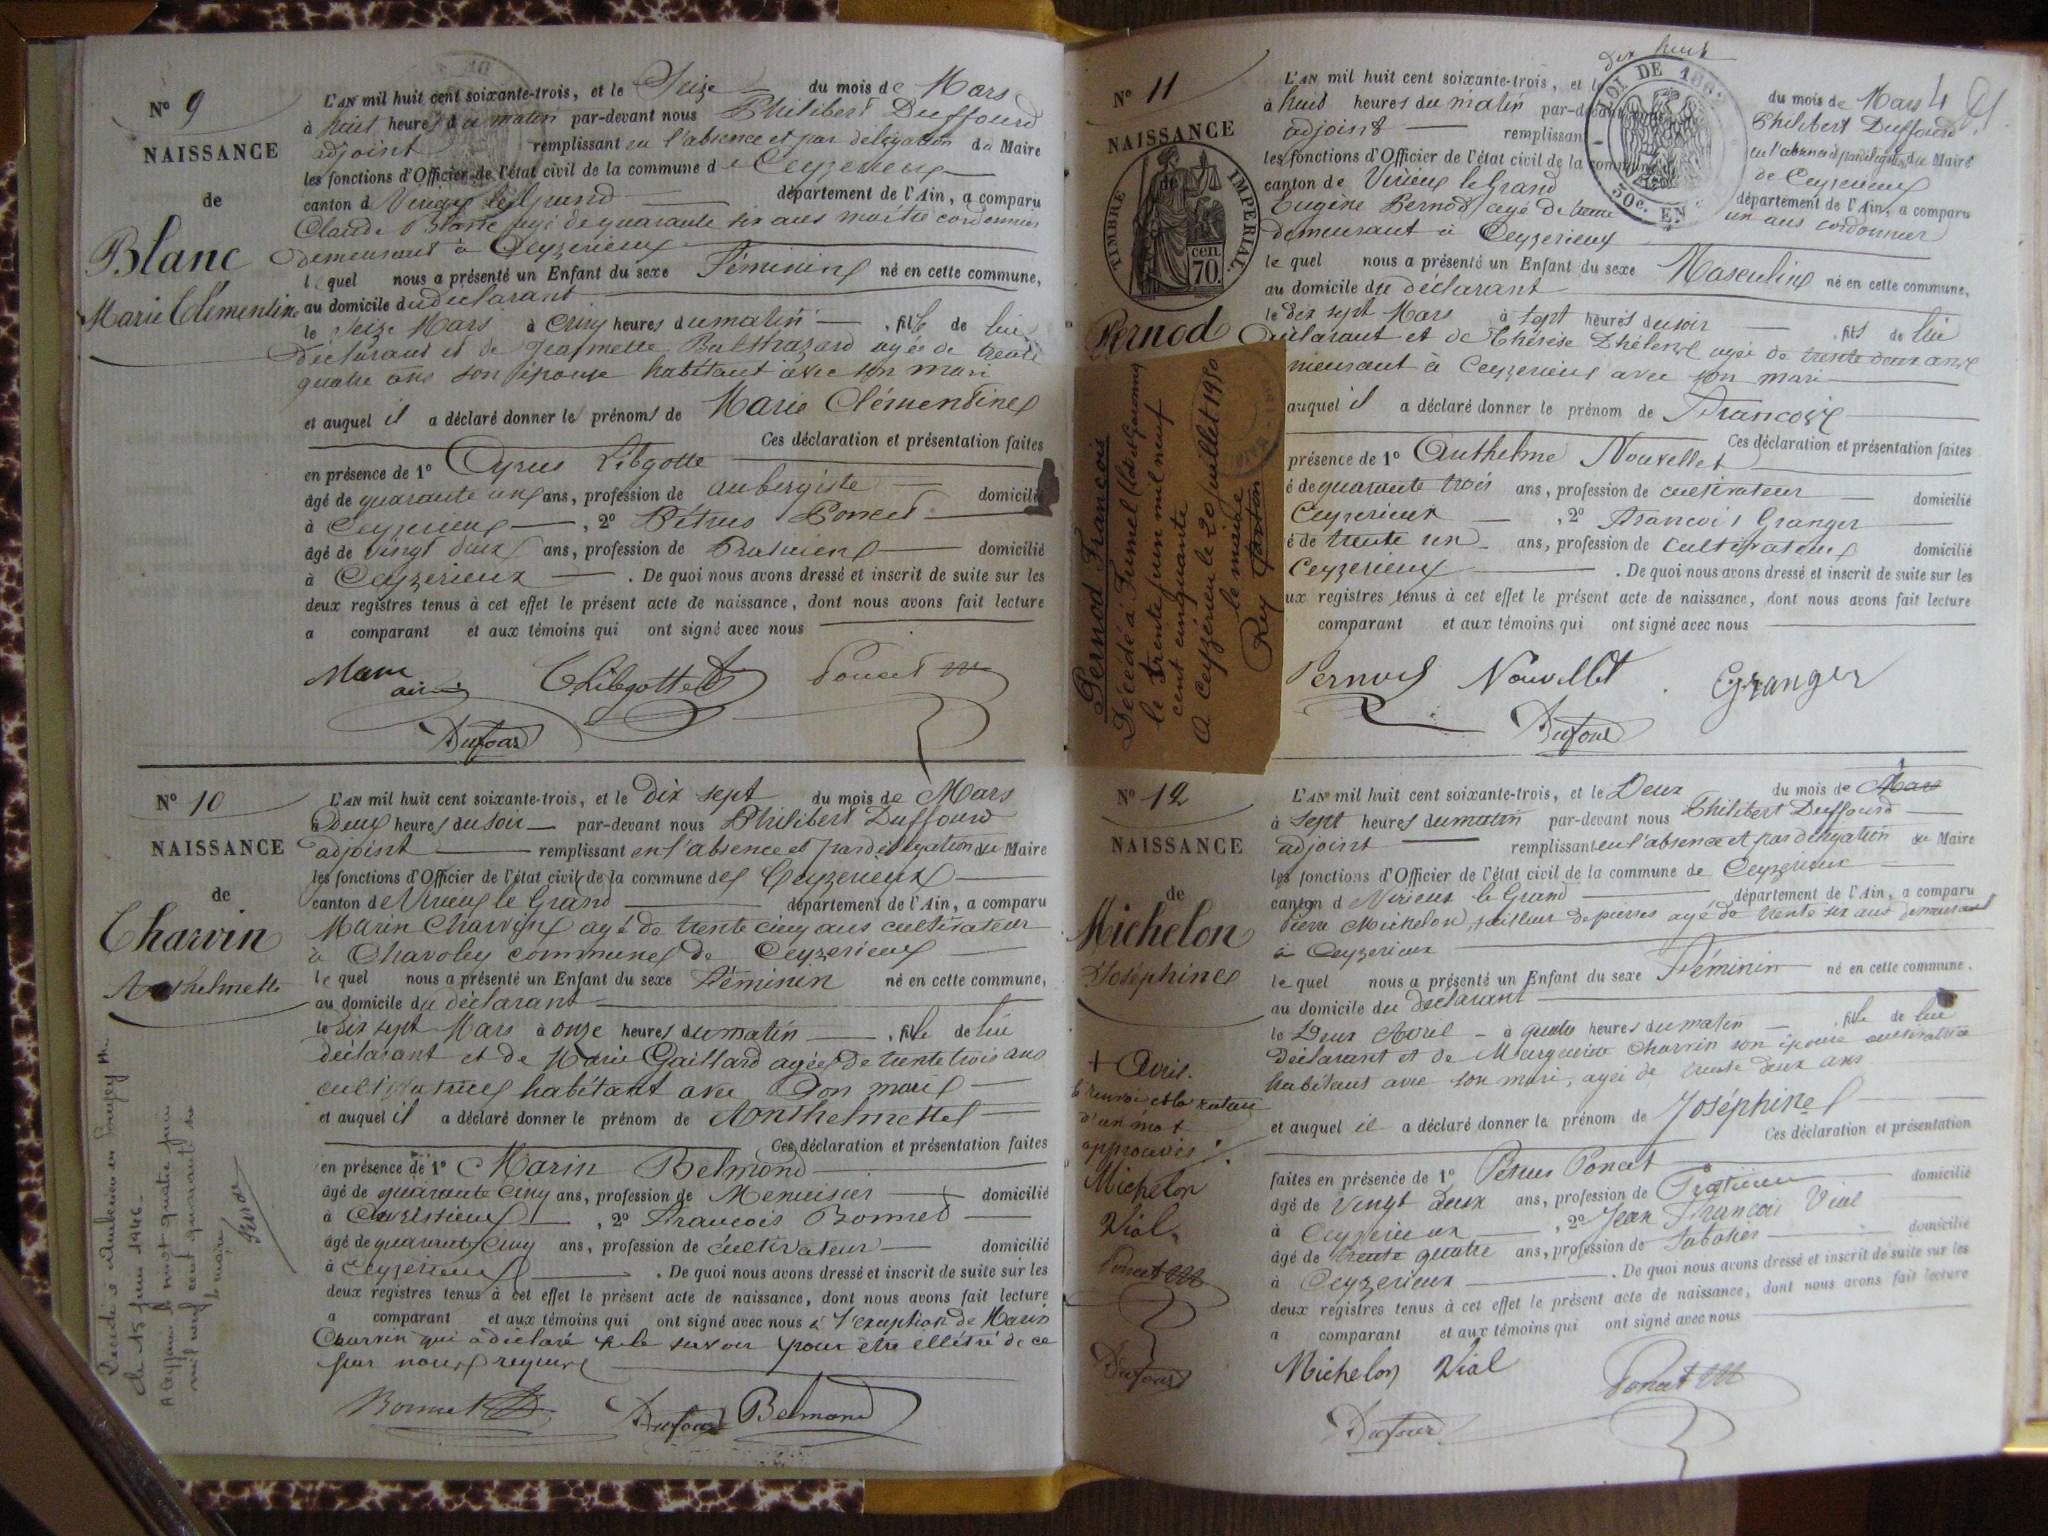 N° 9
NAISSANCE
de
Blanc
Marie Clémentine
L'AN mil huit cent soixante-trois, et le Seize du mois de Mars
à huit heures du matin par-devant nous Philibert Duffourd
adjoint remplissant en l'absence et par délégation du Maire
les fonctions d'Officier de l'état civil de la commune de Ceyzerieux
canton d Virieux le Grand département de l'Ain, a comparu
Claude Blanc agé de quarante six ans maitre cordonnier
demeurant à Ceyzerieux
lequel nous a présenté un Enfant du sexe Féminin né en cette commune,
au domicile du déclarant
le seize Mars à cinq heures du matin , fille de lui
déclarant et de Jeannette Balthazard agée de trente
quatre ans son épouse habitant avec son mari
et auquel il a déclaré donner les prénoms de Marie Clémentine
Ces déclaration et présentation faites
en présence de 1° Cyrus Libgotte
âgé de quarante ans, profession de aubergiste domicilié
à Ceyzerieux , 2° Pétrus Poncet
âgé de vingt deux ans, profession de Praticien domicilié
à Ceyzerieux . De quoi nous avons dressé et inscrit de suite sur les
deux registres tenus à cet effet le présent acte de naissance, dont nous avons fait lecture
a comparant et aux témoins qui ont signé avec nous
CLibgotte Poncet
Dufour
N° 10
NAISSANCE
de
Charvin
Anthelmette
L'AN mil huit cent soixante-trois, et le dix sept du mois de Mars
à Deux heures du soir par-devant nous Philibert Duffourd
adjoint remplissant en l'absence et par délégation du Maire
les fonctions d'Officier de l'état civil de la commune de Ceyzerieux
canton de Virieux le Grand département de l'Ain, a comparu
Marin Charvin agé de trente cinq ans cultivateur
à Chavoley commune de Ceyzerieux
lequel nous a présenté un Enfant du sexe Féminin né en cette commune,
au domicile du déclarant
le dix sept Mars à onze heures du matin , fille de lui
déclarant et de Marie Gaillard agée de trente trois ans
cultivatrice habitant avec Son mari
et auquel il a déclaré donner le prénom de Anthelmette
Ces déclaration et présentation faites
en présence de 1° Marin Belmond
âgé de quarante cinq ans, profession de Menuisier domicilié
à , 2° Francois Bonnet
âgé de quarante cinq ans, profession de cultivateur domicilié
à Ceyzerieux . De quoi nous avons dressé et inscrit de suite sur les
deux registres tenus à cet effet le présent acte de naissance, dont nous avons fait lecture
a comparant et aux témoins qui ont signé avec nous à l'exception de Marin
Charvin qui a déclaré ne le savoir pour être illétré de ce
par nous requis
Bonnet Dufour Belmond
Décédée à Ambérieu en Bugey
le 15 juin 1946
mil neuf cent quarante six
le maire
N° 11
NAISSANCE
de
TIMBRE IMPERIAL.
cen 70.
Pernod
LOI DE 1862
30c. EN
dix huit
L'AN mil huit cent soixante-trois, et le du mois de Mars 4
à huit heures du matin par-devant nous Philibert Duffourd
adjoint remplissant en l'absence et par délégation du Maire
les fonctions d'Officier de l'état civil de la commune de Ceyzerieux
canton de Virieux le Grand département de l'Ain, a comparu
Eugène Pernod agé de trente un ans cordonnier
demeurant à Ceyzerieux
lequel nous a présenté un Enfant du sexe Masculin né en cette commune,
au domicile du déclarant
le dix sept Mars à sept heures du soir , fils de lui
déclarant et de Thérèse agée de trente deux ans
meurant à Ceyzerieux avec son mari
auquel il a déclaré donner le prénom de Francois
Ces déclaration et présentation faites
présence de 1° Anthelme Nouvellet
é de quarante trois ans, profession de cultivateur domicilié
Ceyzerieux , 2° Francois Granger
é de trente un ans, profession de cultivateur domicilié
Ceyzerieux . De quoi nous avons dressé et inscrit de suite sur les
ux registres tenus à cet effet le présent acte de naissance, dont nous avons fait lecture
comparant et aux témoins qui ont signé avec nous
Pernod Nouvellet Granger
Dufour
Pernod François
Décédé à Fumel (Lot et Garonne)
le trente juin mil neuf
cent cinquante
A Ceyzérieu le 20 juillet 1950
le maire
Rey
N° 12
NAISSANCE
de
Michelon
Joséphine
L'AN mil huit cent soixante-trois, et le Deux du mois de Mars
à Sept heures du matin par-devant nous Philibert Duffourd
adjoint remplissant en l'absence et par délégation du Maire
les fonctions d'Officier de l'état civil de la commune de Ceyzerieux
canton d Virieux le Grand département de l'Ain, a comparu
Pierre Michelon, tailleur de pierres agé de trente six ans demeurant
à Ceyzerieux
lequel nous a présenté un Enfant du sexe Féminin né en cette commune.
au domicile du déclarant
le Deux Avril à quatre heures du matin , fille de lui
déclarant et de Marguerite Charvin son épouse cultivatrice
habitant avec son mari, agée de trente deux ans
et auquel il a déclaré donner le prénom de Joséphine
Ces déclaration et présentation
faites en présence de 1° Petrus Poncet
âgé de vingt deux ans, profession de Praticien domicilié
à Ceyzerieux , 2° Jean François Vial
âgé de trente quatre ans, profession de Sabotier domicilié
à Ceyzerieux . De quoi nous avons dressé et inscrit de suite sur les
deux registres tenus à cet effet le présent acte de naissance, dont nous avons fait lecture
a comparant et aux témoins qui ont signé avec nous
Michelon Vial Poncet
Dufour
+ Avril.
le renvoi et la rature
d'un mot
approuvés
Michelon
Vial
Poncet
Dufour